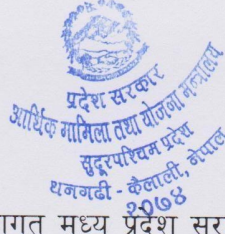 प्रदेश सरकार
आर्थिक मामिला तथा योजना मन्त्रालय
सुदूरपश्चिम प्रदेश
धनगढी - कैलाली, नेपाल
२०७४
मध्य प्रदेश सर